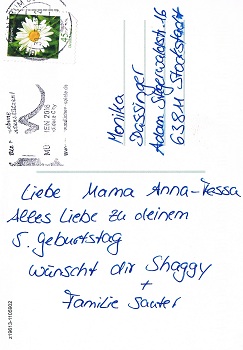 Monika
Dassinger
Adam Stegerwaldstr. 16
63811 Stockstadt
Liebe Mama Anna-Vessa
Alles Liebe zu deinem
5. Geburtstag
wünscht dir Shaggy
+
Familie Sauter
z19613-1105902